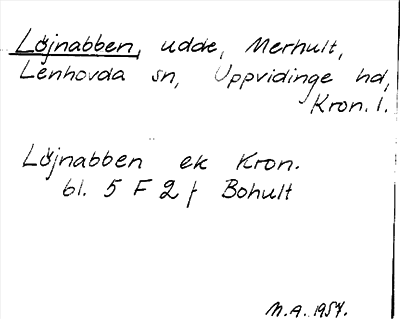 Löjnabben, udde, Merhult,
Lenhovda sn, Uppvidinge hd,
Kron. l.
Löjnabben ek Kron.
bl. 5 F 2 f Bohult
M.A. 1957.